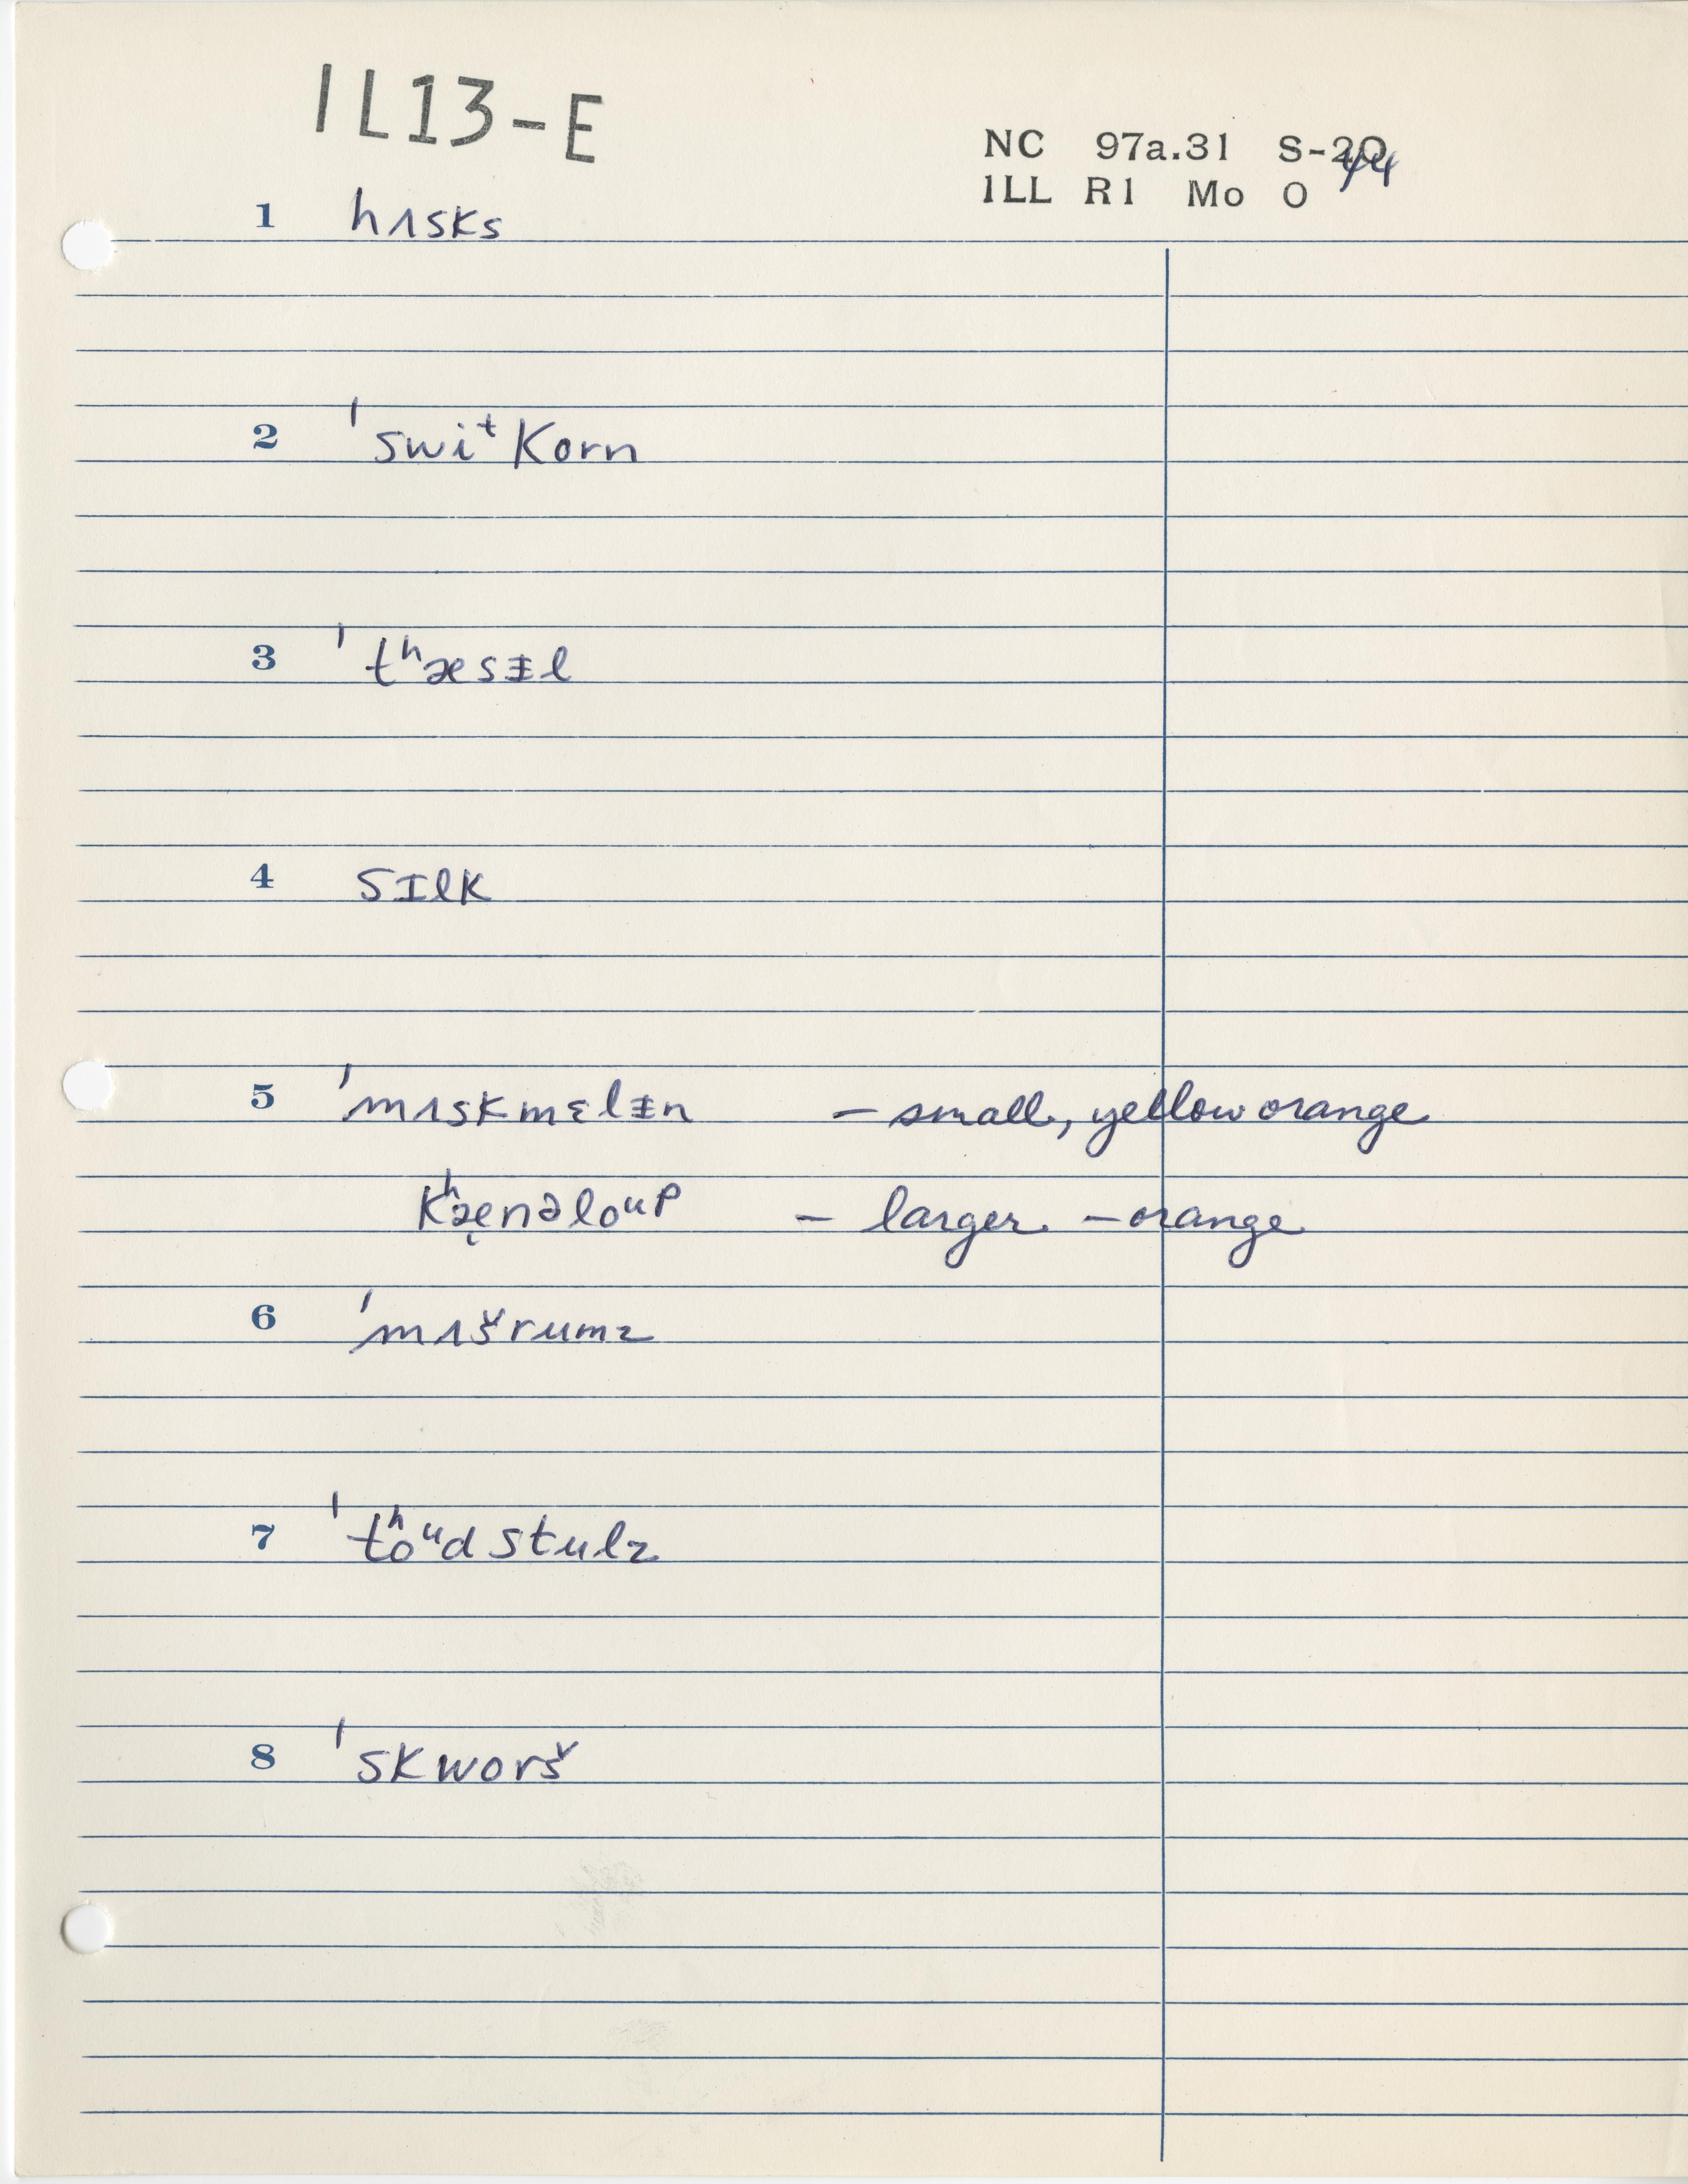 1L13-E
NC 97a.31 S-20 44
1LL R1 Mo O
1 hʌsks
2 ˈswiᵗkorn
3 ˈtʰæsɪ̵l
4 sɪlk
5 ˈmʌskmɛlɪ̵n – small, yellow orange
kʰæ̨nəloᵘp – larger – orange
6 ˈmʌšrumz
7 ˈtʰoᵘdstulz
8 ˈskworš